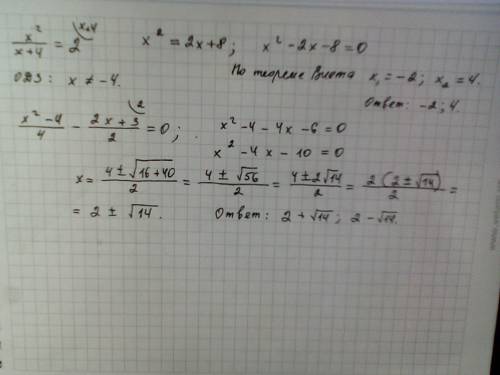 x²/(x+4) = 2 ^(x+4)   x² = 2x+8;   x² - 2x - 8 = 0
ОДЗ: x ≠ -4.   По теореме Виета x₁ = -2; x₂ = 4.
Ответ: -2; 4.
(x² - 4)/4 - (2x + 3)/2 ^(2) = 0;   x² - 4 - 4x - 6 = 0
x² - 4x - 10 = 0
x = (4 ± √(16 + 40))/2 = (4 ± √56)/2 = (4 ± 2√14)/2 = (2(2 ± √14))/2 =
= 2 ± √14.   Ответ: 2 + √14; 2 - √14.